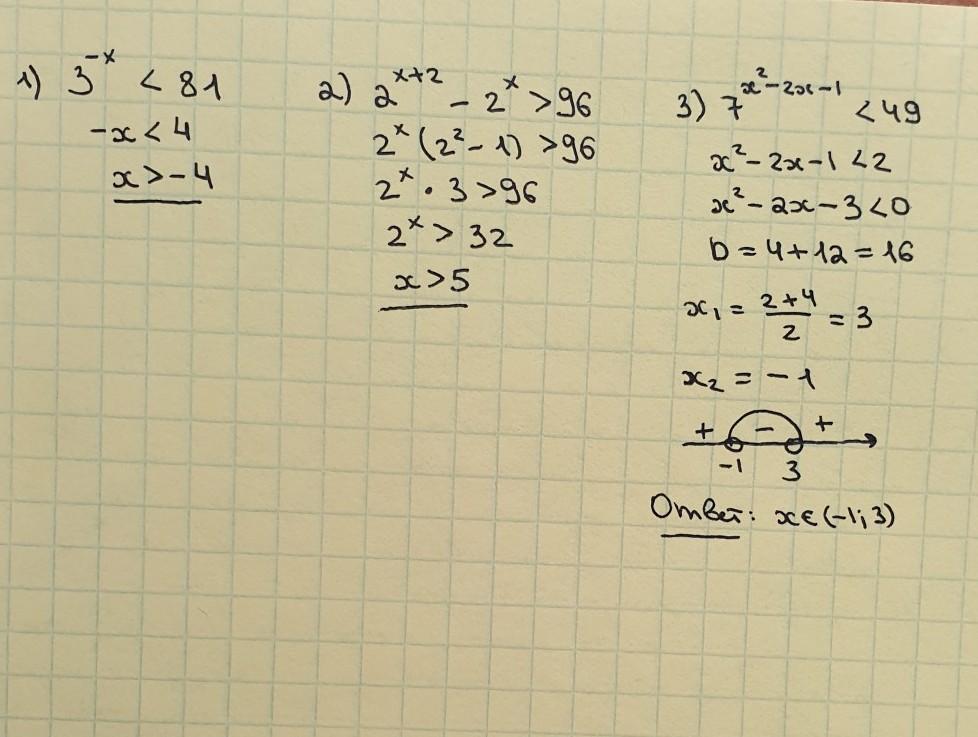 1) 3^{-x} < 81
-x < 4
x > -4
2) 2^{x+2} - 2^x > 96
2^x (2^2 - 1) > 96
2^x · 3 > 96
2^x > 32
x > 5
3) 7^{x^2 - 2x - 1} < 49
x^2 - 2x - 1 < 2
x^2 - 2x - 3 < 0
D = 4 + 12 = 16
x_1 = \frac{2+4}{2} = 3
x_2 = -1
+ - +
-1 3
Ответ: x ∈ (-1; 3)